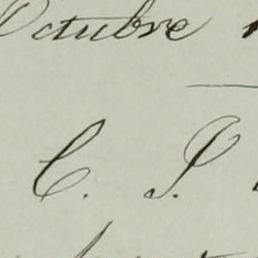 Octubre
C. P.